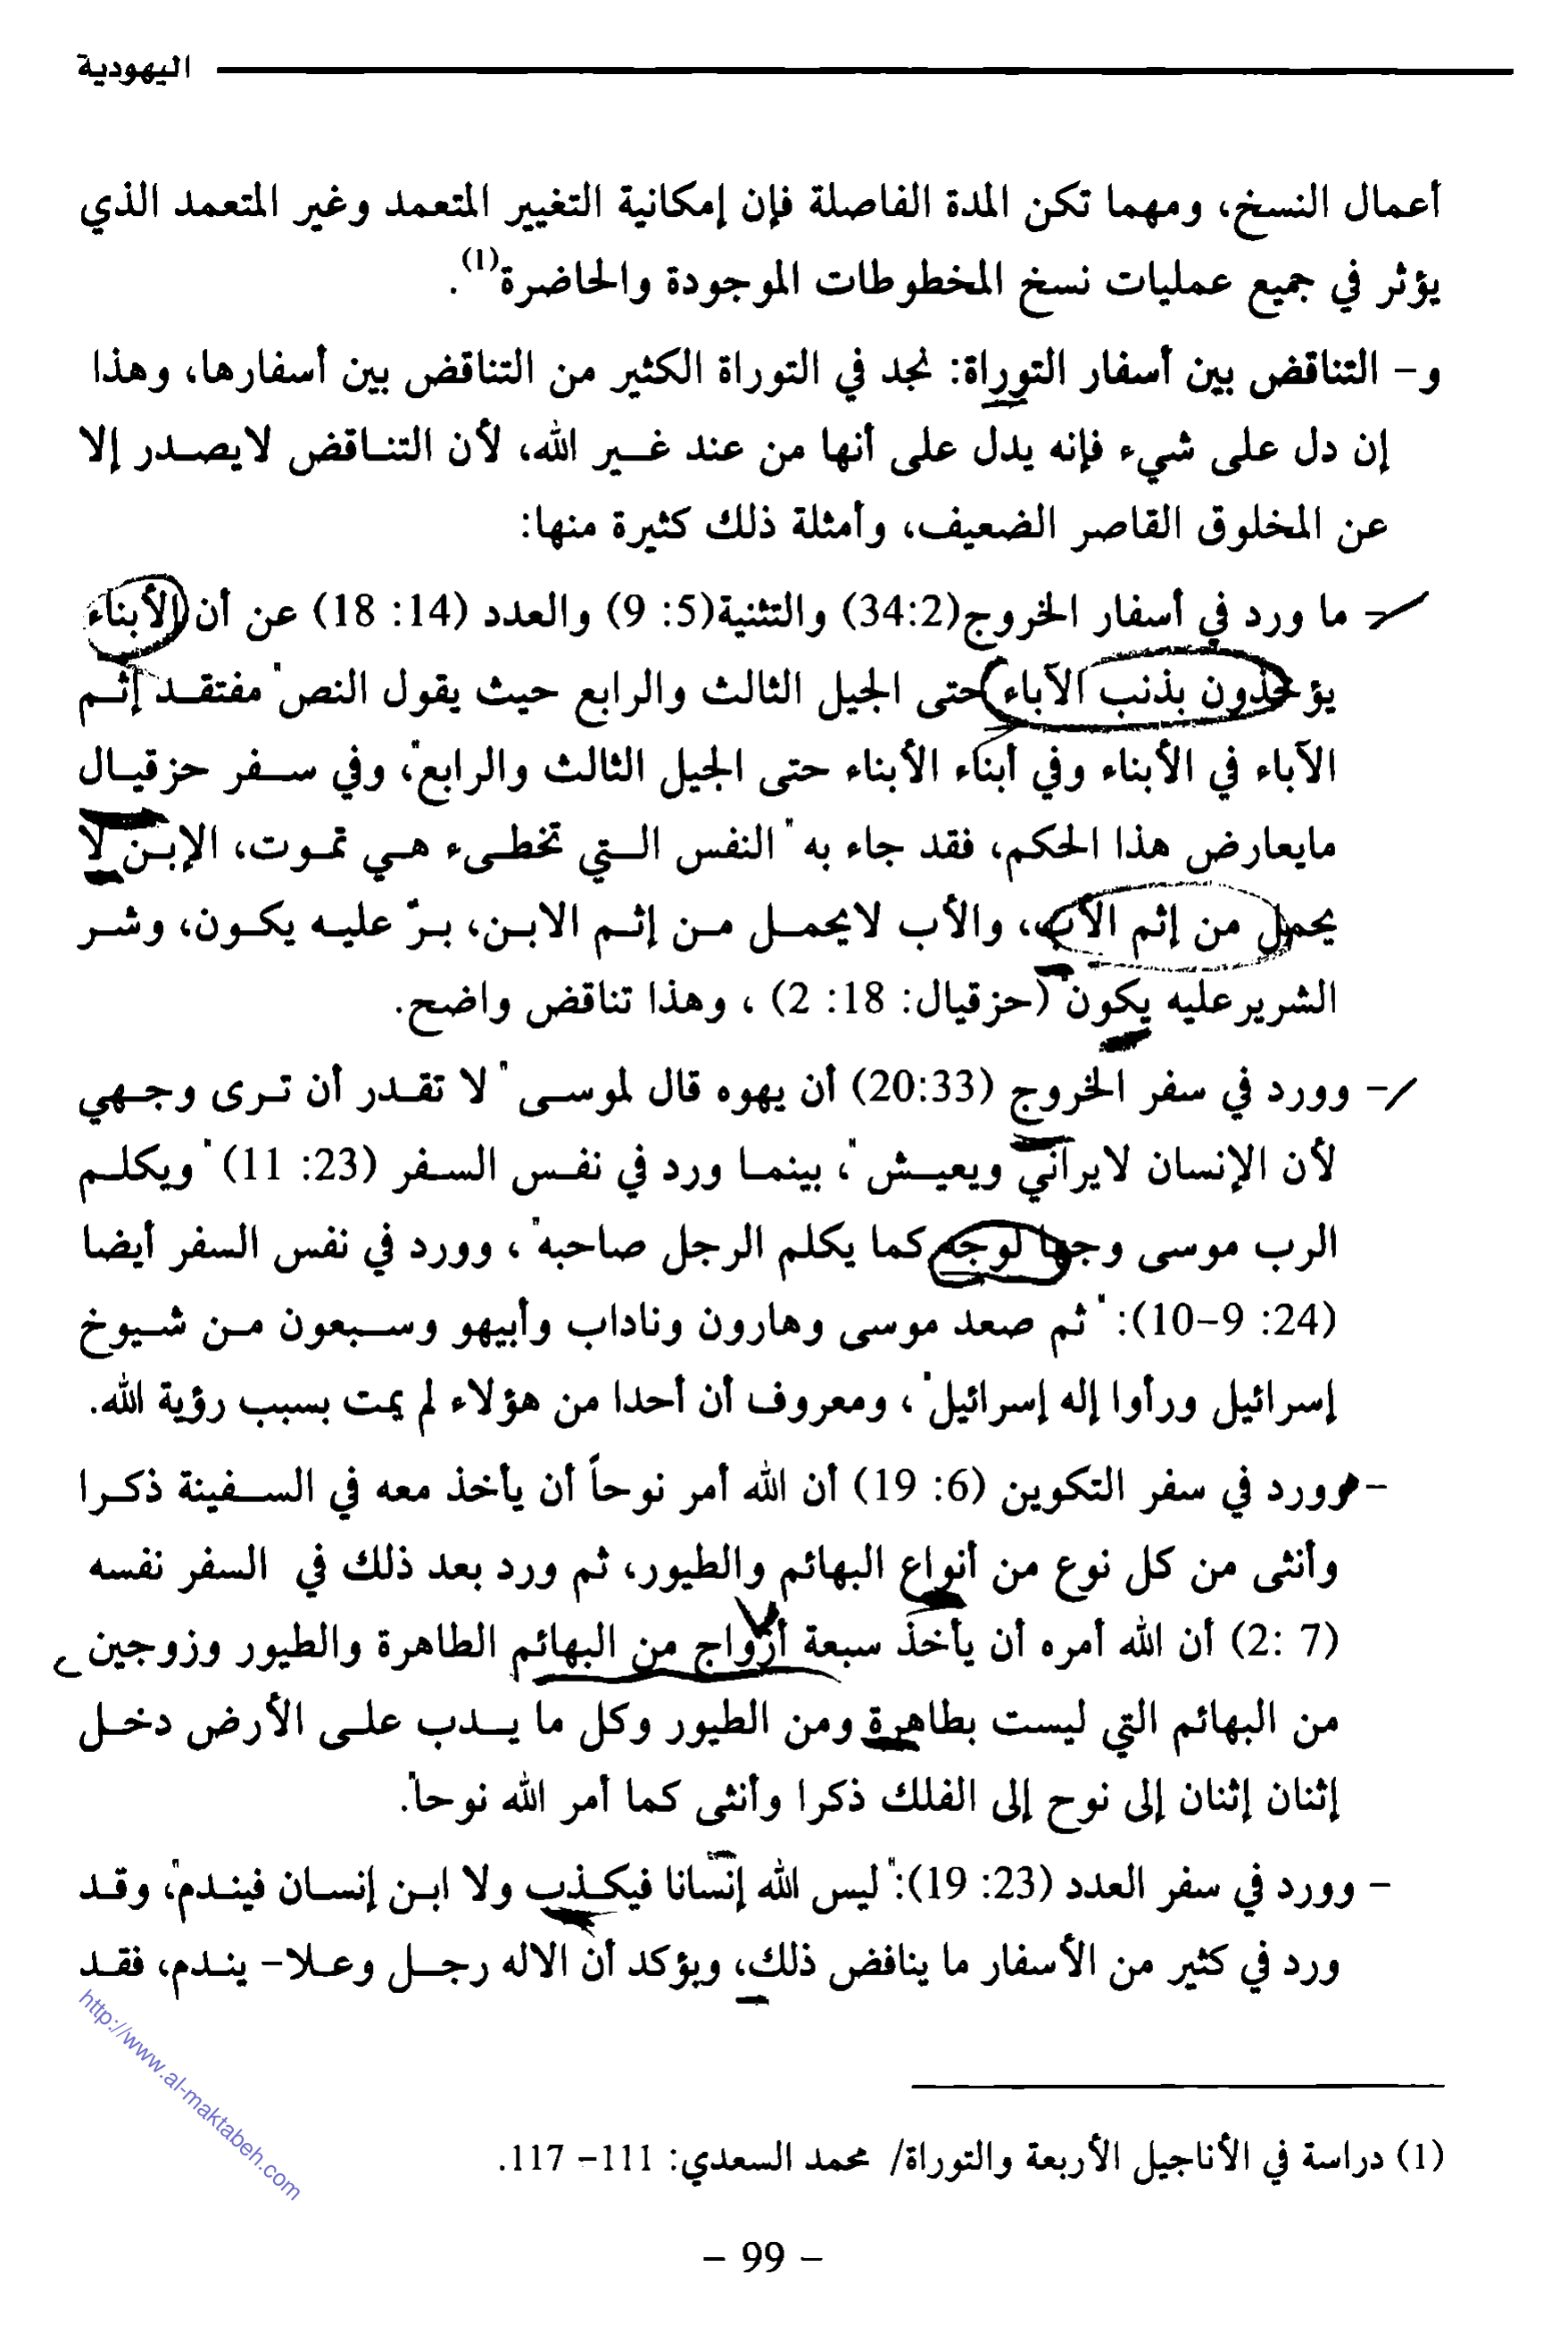 اليهودية
أعمال النسخ، ومهما تكن المدة الفاصلة فإن إمكانية التغيير المتعمد وغير المتعمد الذي
يؤثر في جميع عمليات نسخ المخطوطات الموجودة والحاضرة(1).
و- التناقض بين أسفار التوراة: نجد في التوراة الكثير من التناقض بين أسفارها، وهذا
إن دل على شيء فإنه يدل على أنها من عند غير الله، لأن التناقض لايصدر إلا
عن المخلوق القاصر الضعيف، وأمثلة ذلك كثيرة منها:
- ما ورد في أسفار الخروج(34:2) والتثنية(5: 9) والعدد (14: 18) عن أن الأبناء
يؤخذون بذنب الآباء حتى الجيل الثالث والرابع حيث يقول النص" مفتقد إثم
الآباء في الأبناء وفي أبناء الأبناء حتى الجيل الثالث والرابع"، وفي سفر حزقيال
مايعارض هذا الحكم، فقد جاء به " النفس التي تخطىء هي تموت، الإبن لا
يحمل من إثم الأب، والأب لايحمل من إثم الابن، برّ عليه يكون، وشر
الشريرعليه يكون" (حزقيال: 18: 2) ، وهذا تناقض واضح.
- وورد في سفر الخروج (20:33) أن يهوه قال لموسى " لا تقدر أن ترى وجهي
لأن الإنسان لايراني ويعيش "، بينما ورد في نفس السفر (23: 11) " ويكلم
الرب موسى وجها لوجه كما يكلم الرجل صاحبه" ، وورد في نفس السفر أيضا
(24: 9-10): " ثم صعد موسى وهارون وناداب وأبيهو وسبعون من شيوخ
إسرائيل ورأوا إله إسرائيل" ، ومعروف أن أحدا من هؤلاء لم يمت بسبب رؤية الله.
- وورد في سفر التكوين (6: 19) أن الله أمر نوحاً أن يأخذ معه في السفينة ذكرا
وأنثى من كل نوع من أنواع البهائم والطيور، ثم ورد بعد ذلك في السفر نفسه
(7 :2) أن الله أمره أن يأخذ سبعة أزواج من البهائم الطاهرة والطيور وزوجين
من البهائم التي ليست بطاهرة ومن الطيور وكل ما يدب على الأرض دخل
إثنان إثنان إلى نوح إلى الفلك ذكرا وأنثى كما أمر الله نوحا".
- وورد في سفر العدد (23: 19):" ليس الله إنسانا فيكذب ولا ابن إنسان فيندم"، وقد
ورد في كثير من الأسفار ما يناقض ذلك، ويؤكد أن الاله رجل وعلا- يندم، فقد
http://www.al-maktabeh.com
(1) دراسة في الأناجيل الأربعة والتوراة/ محمد السعدي: 111- 117.
- 99 -